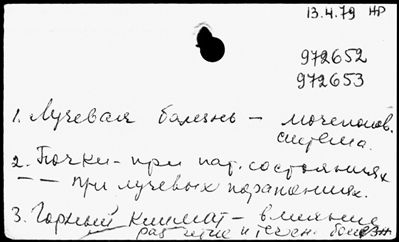 13.4.79 НР
972652
972653
1. Лучевая болезнь – мочеполов.
система.
2. Почки – при пат. состояниях
— — при лучевых поражениях.
3. Горный климат – влияние
развитие и течен. болезн